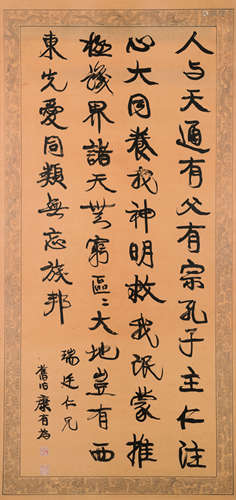 人与天通有父有宗孔子主仁注
心大同養我神明救我氓蒙推
極諸界諸天無窮區〻大地豈有西
東先愛同類無忘族邦
瑞廷仁兄
舊旧康有為